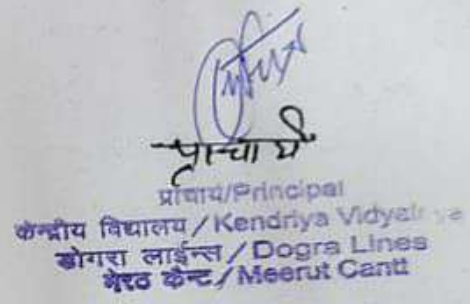 प्राचार्य
प्राचार्य/Principal
केन्द्रीय विद्यालय / Kendriya
डोगरा लाईन्स / Dogra Lines
मेरठ कैन्ट / Meerut Cantt